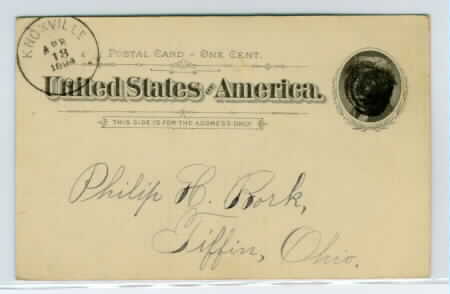 KNOXVILLE
APR
13
POSTAL CARD - ONE CENT.
United States of America.
THIS SIDE IS FOR THE ADDRESS ONLY.
Philip H. Bork,
Tiffin, Ohio.